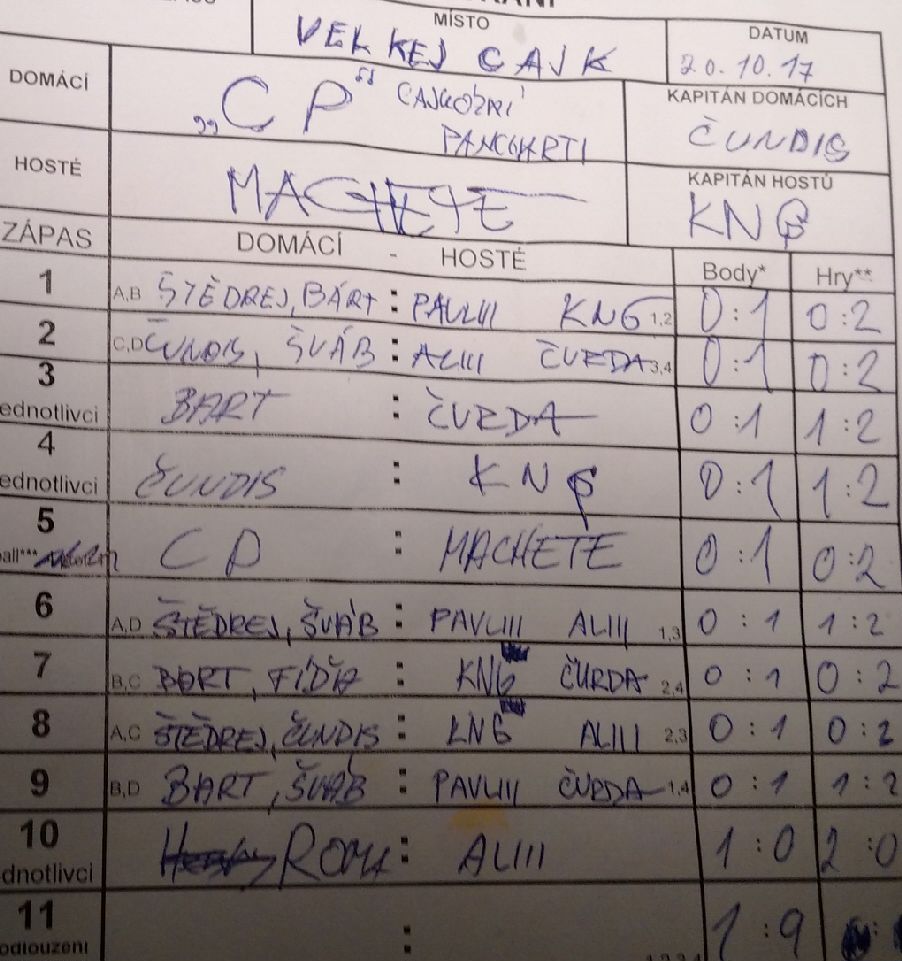 MÍSTO
DATUM
VELKEJ CAJK
20.10.17
DOMÁCÍ
„CP“ CAJKOŽNÍ
PANCHARTI
KAPITÁN DOMÁCÍCH
ČUNDIS
HOSTÉ
MACHETE
KAPITÁN HOSTŮ
KNG
ZÁPAS DOMÁCÍ - HOSTÉ Body* Hry**
1 A,B ŠTĚDREJ, BÁRT : PAVLIII KNG 1,2 0:1 0:2
2 C,D ČUNDIS, ŠVÁB : ALIII ČURDA 3,4 0:1 0:2
3 ednotlivci BART : ČURDA 0:1 1:2
4 ednotlivci ČUNDIS : KNG 0:1 1:2
5 all*** CP : MACHETE 0:1 0:2
6 A,D ŠTĚDREJ, ŠVÁB : PAVLIII ALIII 1,3 0:1 1:2
7 B,C BART, FÍĎA : KNG ČURDA 2,4 0:1 0:2
8 A,C ŠTĚDREJ, ČUNDIS : KNG ALIII 2,3 0:1 0:2
9 B,D BART, ŠVÁB : PAVLIII ČURDA 1,4 0:1 1:2
10 dnotlivci ROMI : ALIII 1:0 2:0
11 odloužení : 1:9